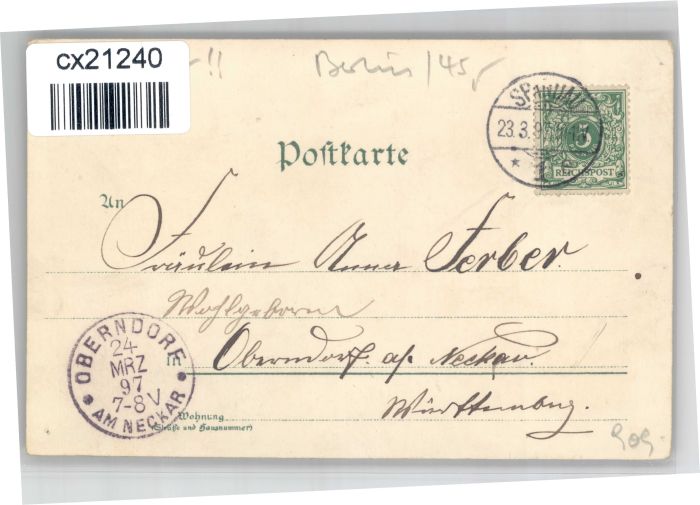 cx21240
Berlin /45,-
SPANDAU
23.3.97
1
3
REICHSPOST
Postkarte
An
Fräulein Anna Ferber.
Wohlgeboren
in Oberndorf a/ Neckar.
Württemberg.
OBERNDORF
24
MRZ
97
7-8V
AM NECKAR
Wohnung
(Straße und Hausnummer)